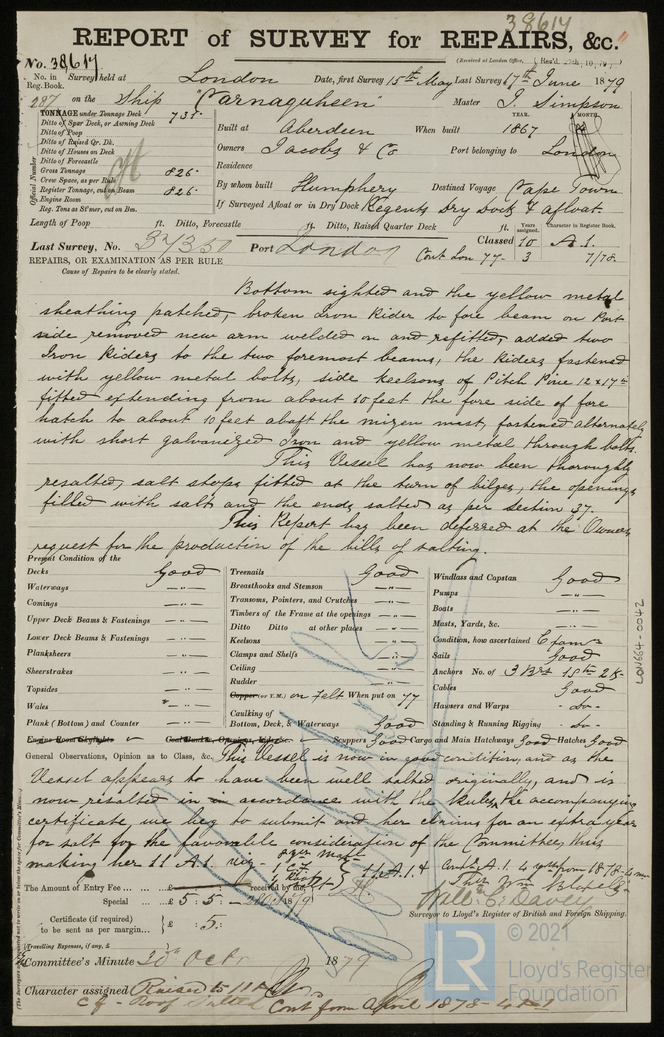 38614
REPORT of SURVEY for REPAIRS, &c.
(Received at London Office,
No. 38614
No. in Survey held at London Date, first Survey 15th May Last Survey 17th June 1879
Reg. Book.
287 on the Ship Master J. Simpson
TONNAGE under Tonnage Deck 735.
Ditto of Spar Deck, or Awning Deck
Ditto of Poop
Ditto of Raised Qr. Dk.
Ditto of Houses on Deck
Ditto of Forecastle
Gross Tonnage 826.
Crew Space, as per Rule
Register Tonnage, cut on Beam 826.
Engine Room
Reg. Tons as St'mer, cut on Bm.
Official Number
YEAR. MONTH.
Built at Aberdeen When built 1867
Owners Jacobs & Co Port belonging to London
Residence
By whom built Humphery Destined Voyage Cape Town
If Surveyed Afloat or in Dry Dock Regents Dry Dock & afloat.
Length of Poop ft. Ditto, Forecastle ft. Ditto, Raised Quarter Deck ft.
Years assigned. Character in Register Book.
Last Survey, No. 37350 Port London Cont Lon 77- Classed 10 A.1.
3 7/78.
REPAIRS, OR EXAMINATION AS PER RULE
Cause of Repairs to be clearly stated.
Bottom sighted and the yellow metal
sheathing patched, broken Iron Rider to fore beam on Port
side removed new arm welded on and refitted, added two
Iron Riders to the two foremost beams, the Riders fastened
with yellow metal bolts, side keelsons of Pitch Pine 12 x 17 in
fitted extending from about 10 feet the fore side of fore
hatch to about 10 feet abaft the mizen mast, fastened alternately
with short galvanized Iron and yellow metal through bolts.
This Vessel has now been thoroughly
resalted, salt stops fitted at the turn of bilges, the openings
filled with salt and the ends salted as per section 37.
This Report has been deferred at the Owners
request for the production of the bills of salting.
Present Condition of the
Decks Good
Waterways - " -
Comings - " -
Upper Deck Beams & Fastenings - " -
Lower Deck Beams & Fastenings - " -
Planksheers - " -
Sheerstrakes - " -
Topsides - " -
Wales - " -
Plank (Bottom) and Counter - " -
Treenails Good
Breasthooks and Stemson - " -
Transoms, Pointers, and Crutches - " -
Timbers of the Frame at the openings - " -
Ditto Ditto at other places - " -
Keelsons - " -
Clamps and Shelfs - " -
Ceiling - " -
Rudder - " -
Copper (or Y.M.) on Felt When put on 77
Caulking of
Bottom, Deck, & Waterways Good
Windlass and Capstan Good
Pumps - " -
Boats - " -
Masts, Yards, &c. - " -
Condition, how ascertained Exam
Sails Good
Anchors No. of 3 Brs 1 Stm 2 K.
Cables Good
Hawsers and Warps - do -
Standing & Running Rigging - do -
Engine Room Skylights Scuppers Good Cargo and Main Hatchways Good Hatches Good
General Observations, Opinion as to Class, &c. This Vessel is now in good condition, and as the
Vessel appears to have been well salted originally, and is
now resalted in accordance with the Rules, the accompanying
certificate we beg to submit and her claims for an extra year
for salt for the favorable consideration of the Committee, this
making her 11 A.1.
The Amount of Entry Fee £ received by me,
Special £ 5. 5. - 1879
Certificate (if required)
to be sent as per margin £ : 5:
(Travelling Expenses, if any, £
Will. E. Davey
Surveyor to Lloyd's Register of British and Foreign Shipping.
Committee's Minute 30th Octr 1879
Character assigned Raised to 11
Cont from April 1878 - 4
LON664-0042
© 2021
LR
Lloyd's Register
Foundation